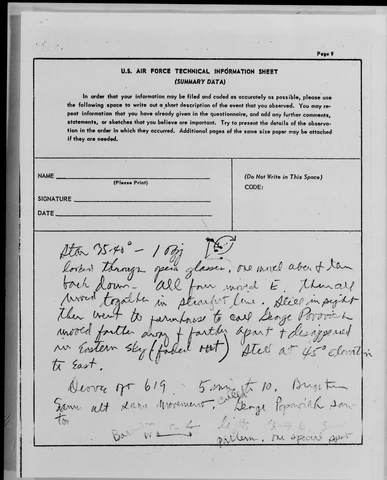 Page 9
U.S. AIR FORCE TECHNICAL INFORMATION SHEET
(SUMMARY DATA)
In order that your information may be filed and coded as accurately as possible, please use
the following space to write out a short description of the event that you observed. You may re-
peat information that you have already given in the questionnaire, and add any further comments,
statements, or sketches that you believe are important. Try to present the details of the observa-
tion in the order in which they occurred. Additional pages of the same size paper may be attached
if they are needed.
NAME
(Please Print)
SIGNATURE
DATE
(Do Not Write in This Space)
CODE:
Star 35-40° - 1 obj
looked through opera glasses, one moved above & then
back down. All four moved E. Then all
moved together in straight line. Still in sight
then went to farmhouse to call George Popovich
moved farther away & farther apart & disappeared
in Eastern sky (faded out) Still at 45° elevation
to East.
Drove off 619. 5 min at 10. Bright
Same alt same movement. called George Popovich saw
pattern. one special spot